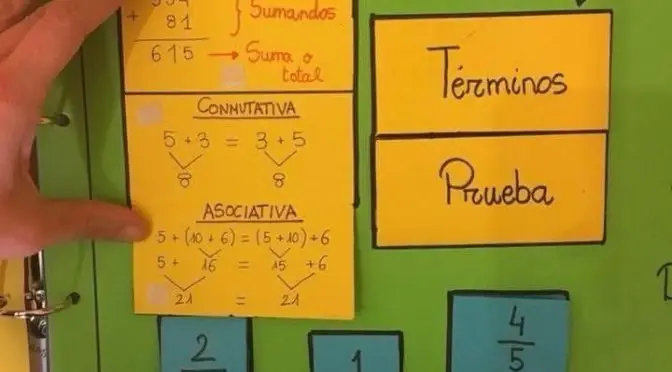 + 81
Sumandos
615 → Suma o
total
CONMUTATIVA
5 + 3 = 3 + 5
8 8
ASOCIATIVA
5 + (10 + 6) = (5 + 10) + 6
5 + 16 = 15 + 6
21 = 21
Términos
Prueba
2
1
4
5